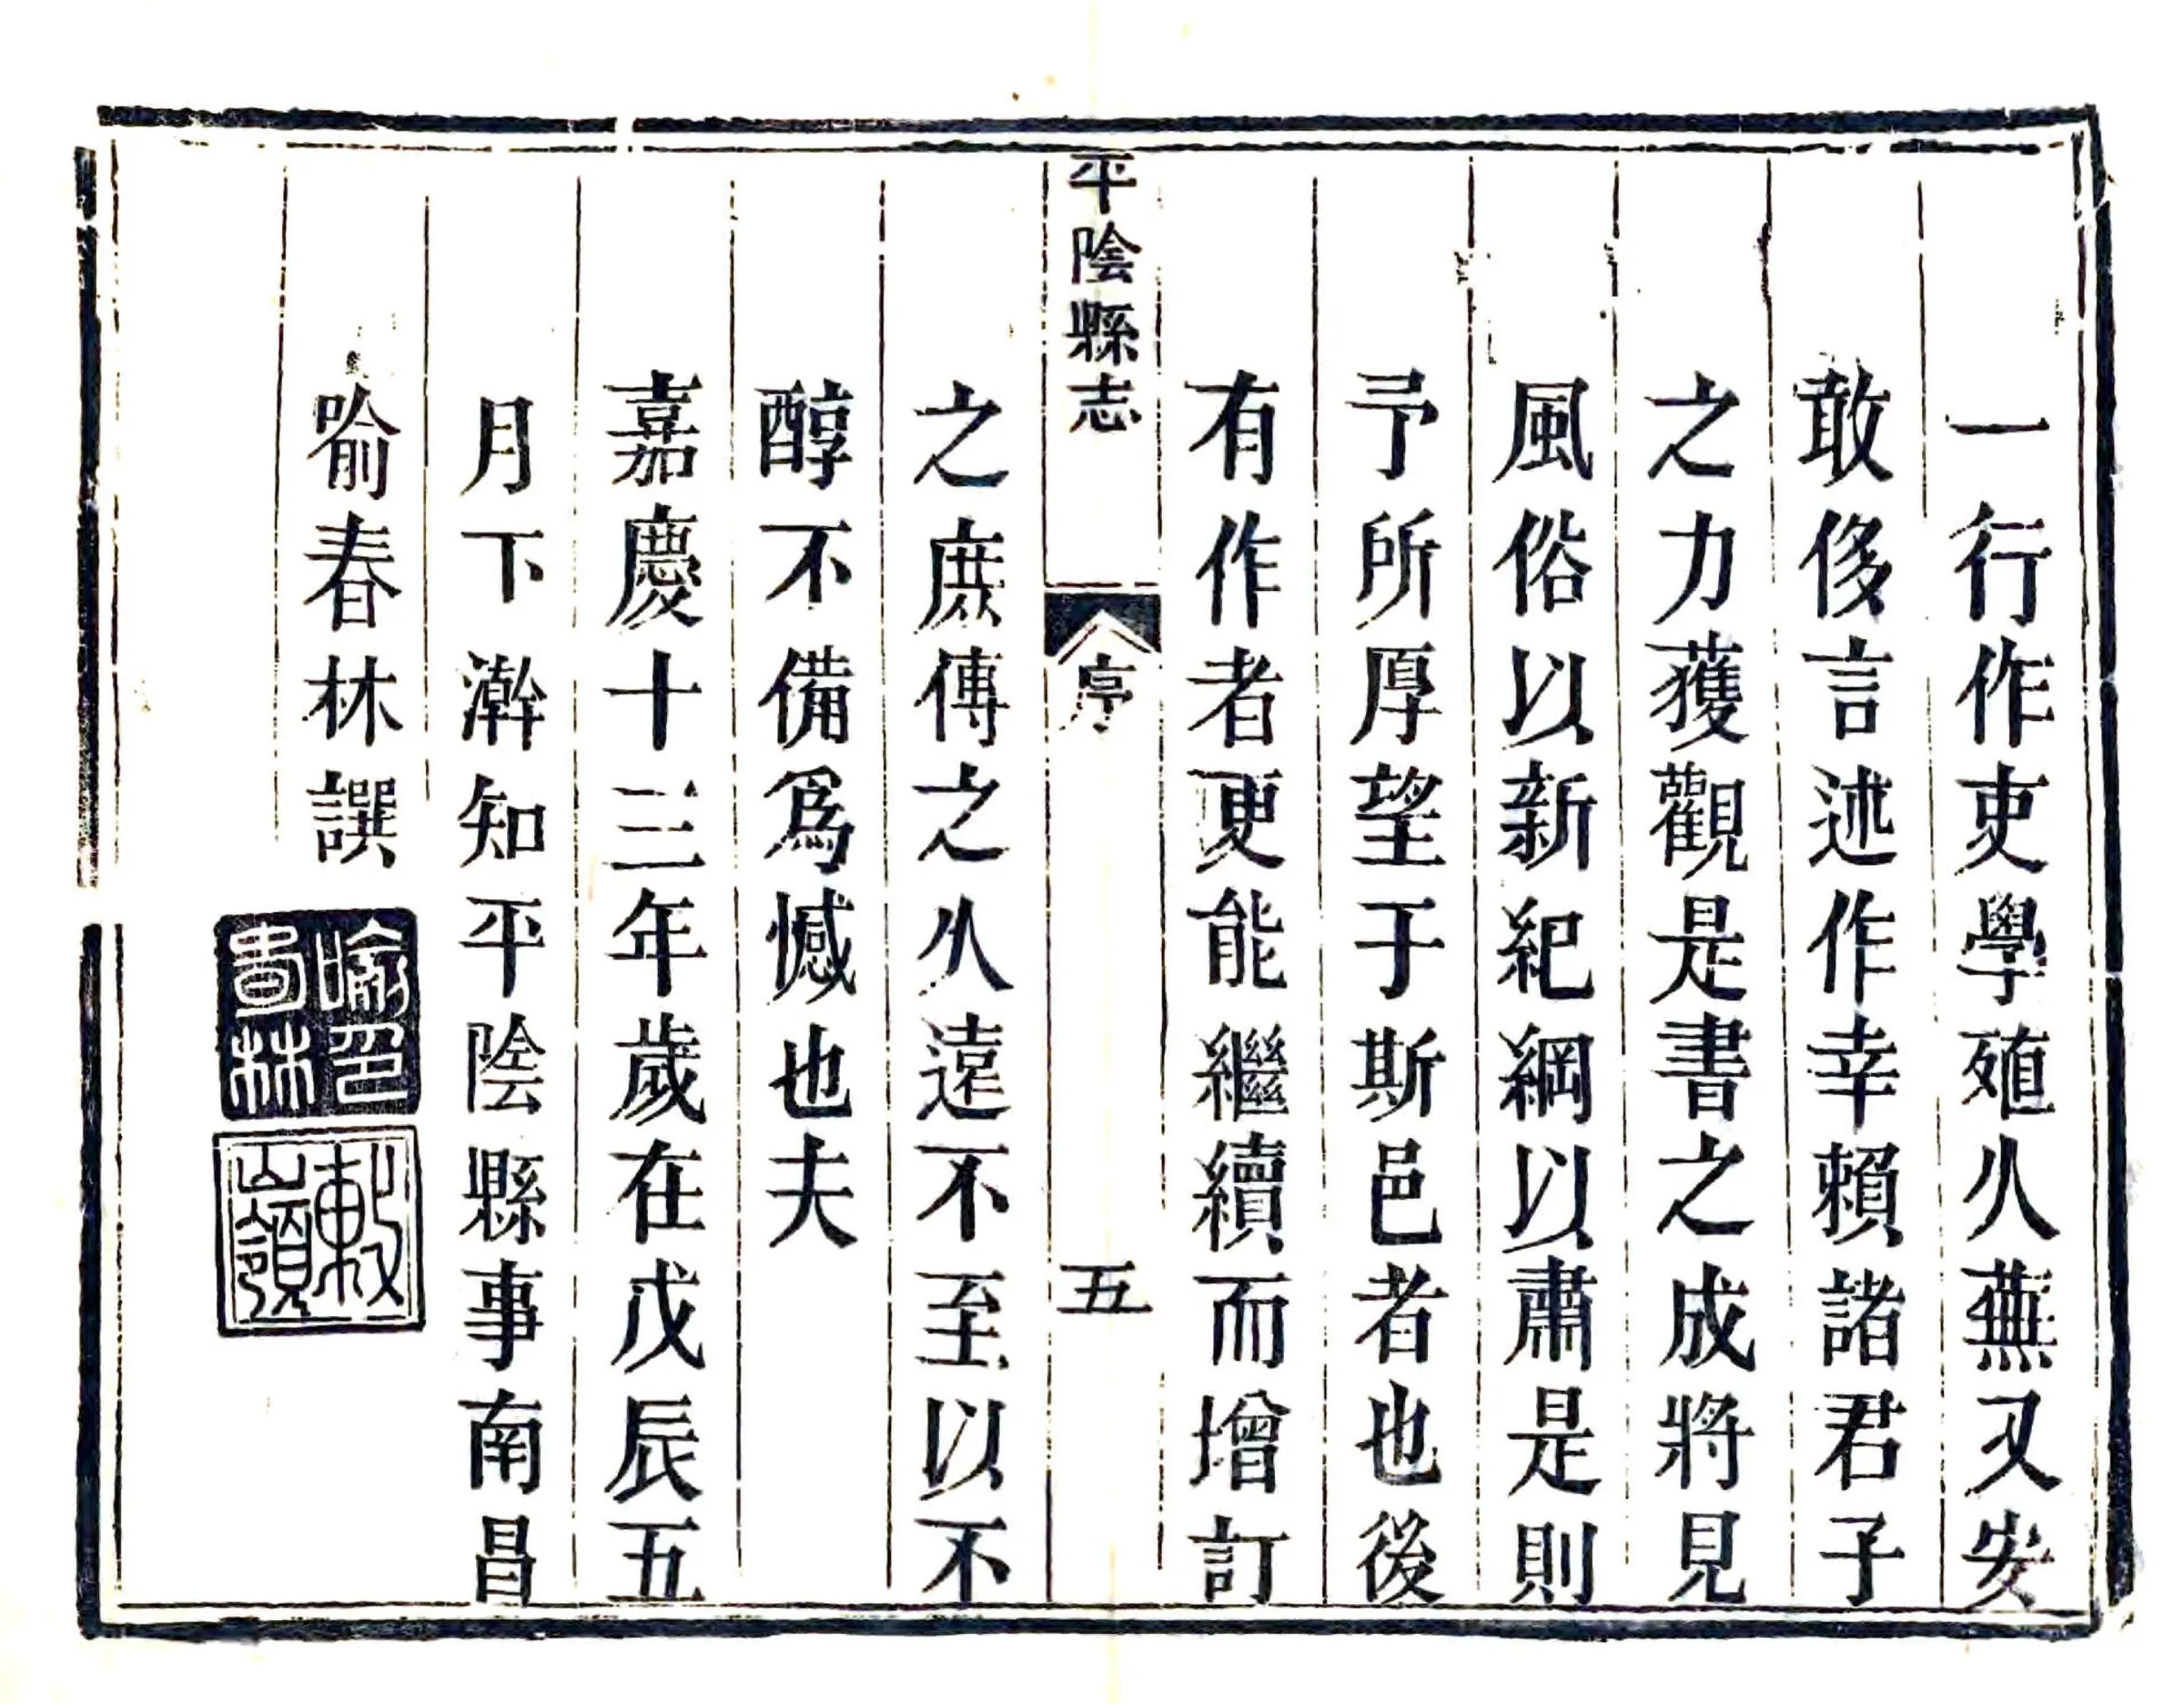 一行作吏學殖久蕪又安
敢侈言述作幸賴諸君子
之力獲觀是書之成將見
風俗以新紀綱以肅是則
予所厚望于斯邑者也後
有作者更能繼續而增訂
平陰縣志
序
五
之庶傳之久遠不至以不
醇不備爲憾也夫
嘉慶十三年歲在戊辰五
月下澣知平陰縣事南昌
喻春林譔
喻春林印
敕山嶺